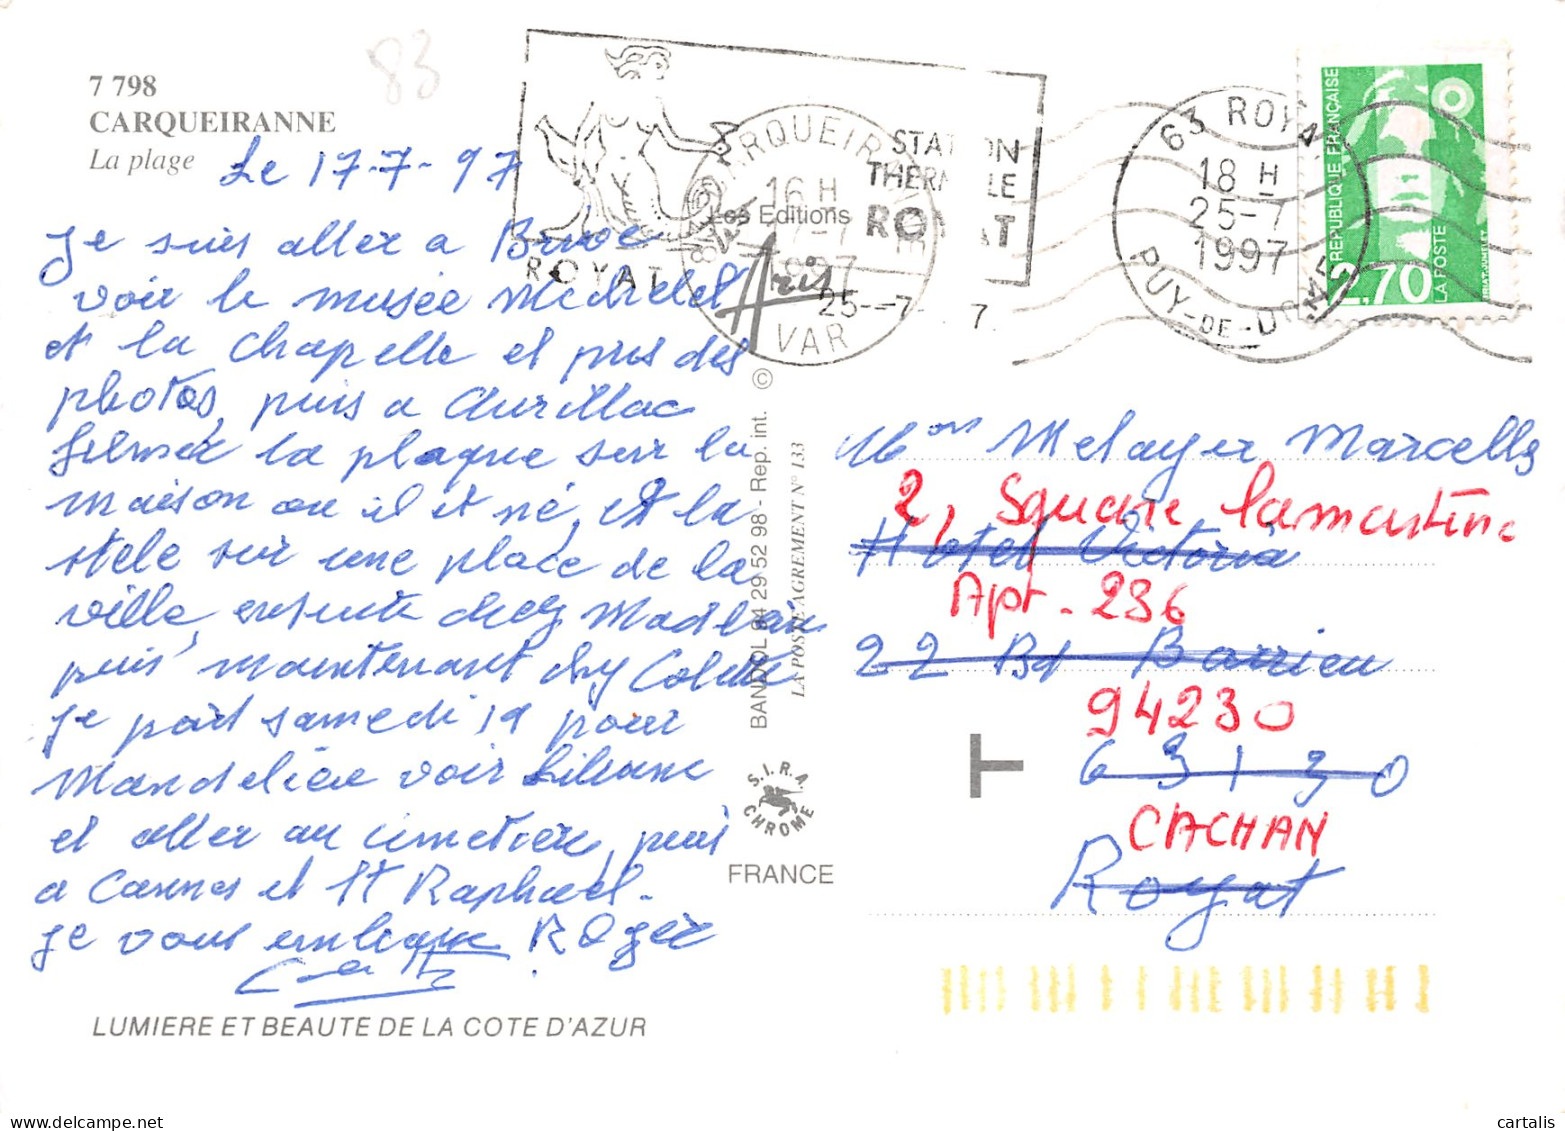 83
7 798
CARQUEIRANNE
La plage
Le 17-7-97
Je suis aller a Brive
voir le musée
et la chapelle et pris des
photos, puis a Aurillac
filmer la plaque sur la
maison ou il et né, et la
stele sur une place de la
ville, ensuite chez
puis maintenant chez Colette
je part samedi 19 pour
voir Liliane
et aller au cimetière, puis
a Cannes et St Raphael.
je vous embrasse Roger
LUMIERE ET BEAUTE DE LA COTE D'AZUR
ROYAT
STATION
THERMALE
ROYAT
25-7- 7
CARQUEIRANNE
16 H
1997
VAR
Les Editions
Aris
63 ROYAT
18 H
25-7
1997
PUY-DE-DOME
REPUBLIQUE FRANÇAISE
2,70
LA POSTE
BANDOL 94 29 52 98 - Rep. int. ©
LA POSTE AGREMENT N° 133
S.I.R.A.
CHROME
FRANCE
Melayer Marcelle
2, Square Lamartine
Hotel Victoria
Apt. 236
22 Bd Barrieu
94230
63130
CACHAN
Royat
T
delcampe.net
cartes-but